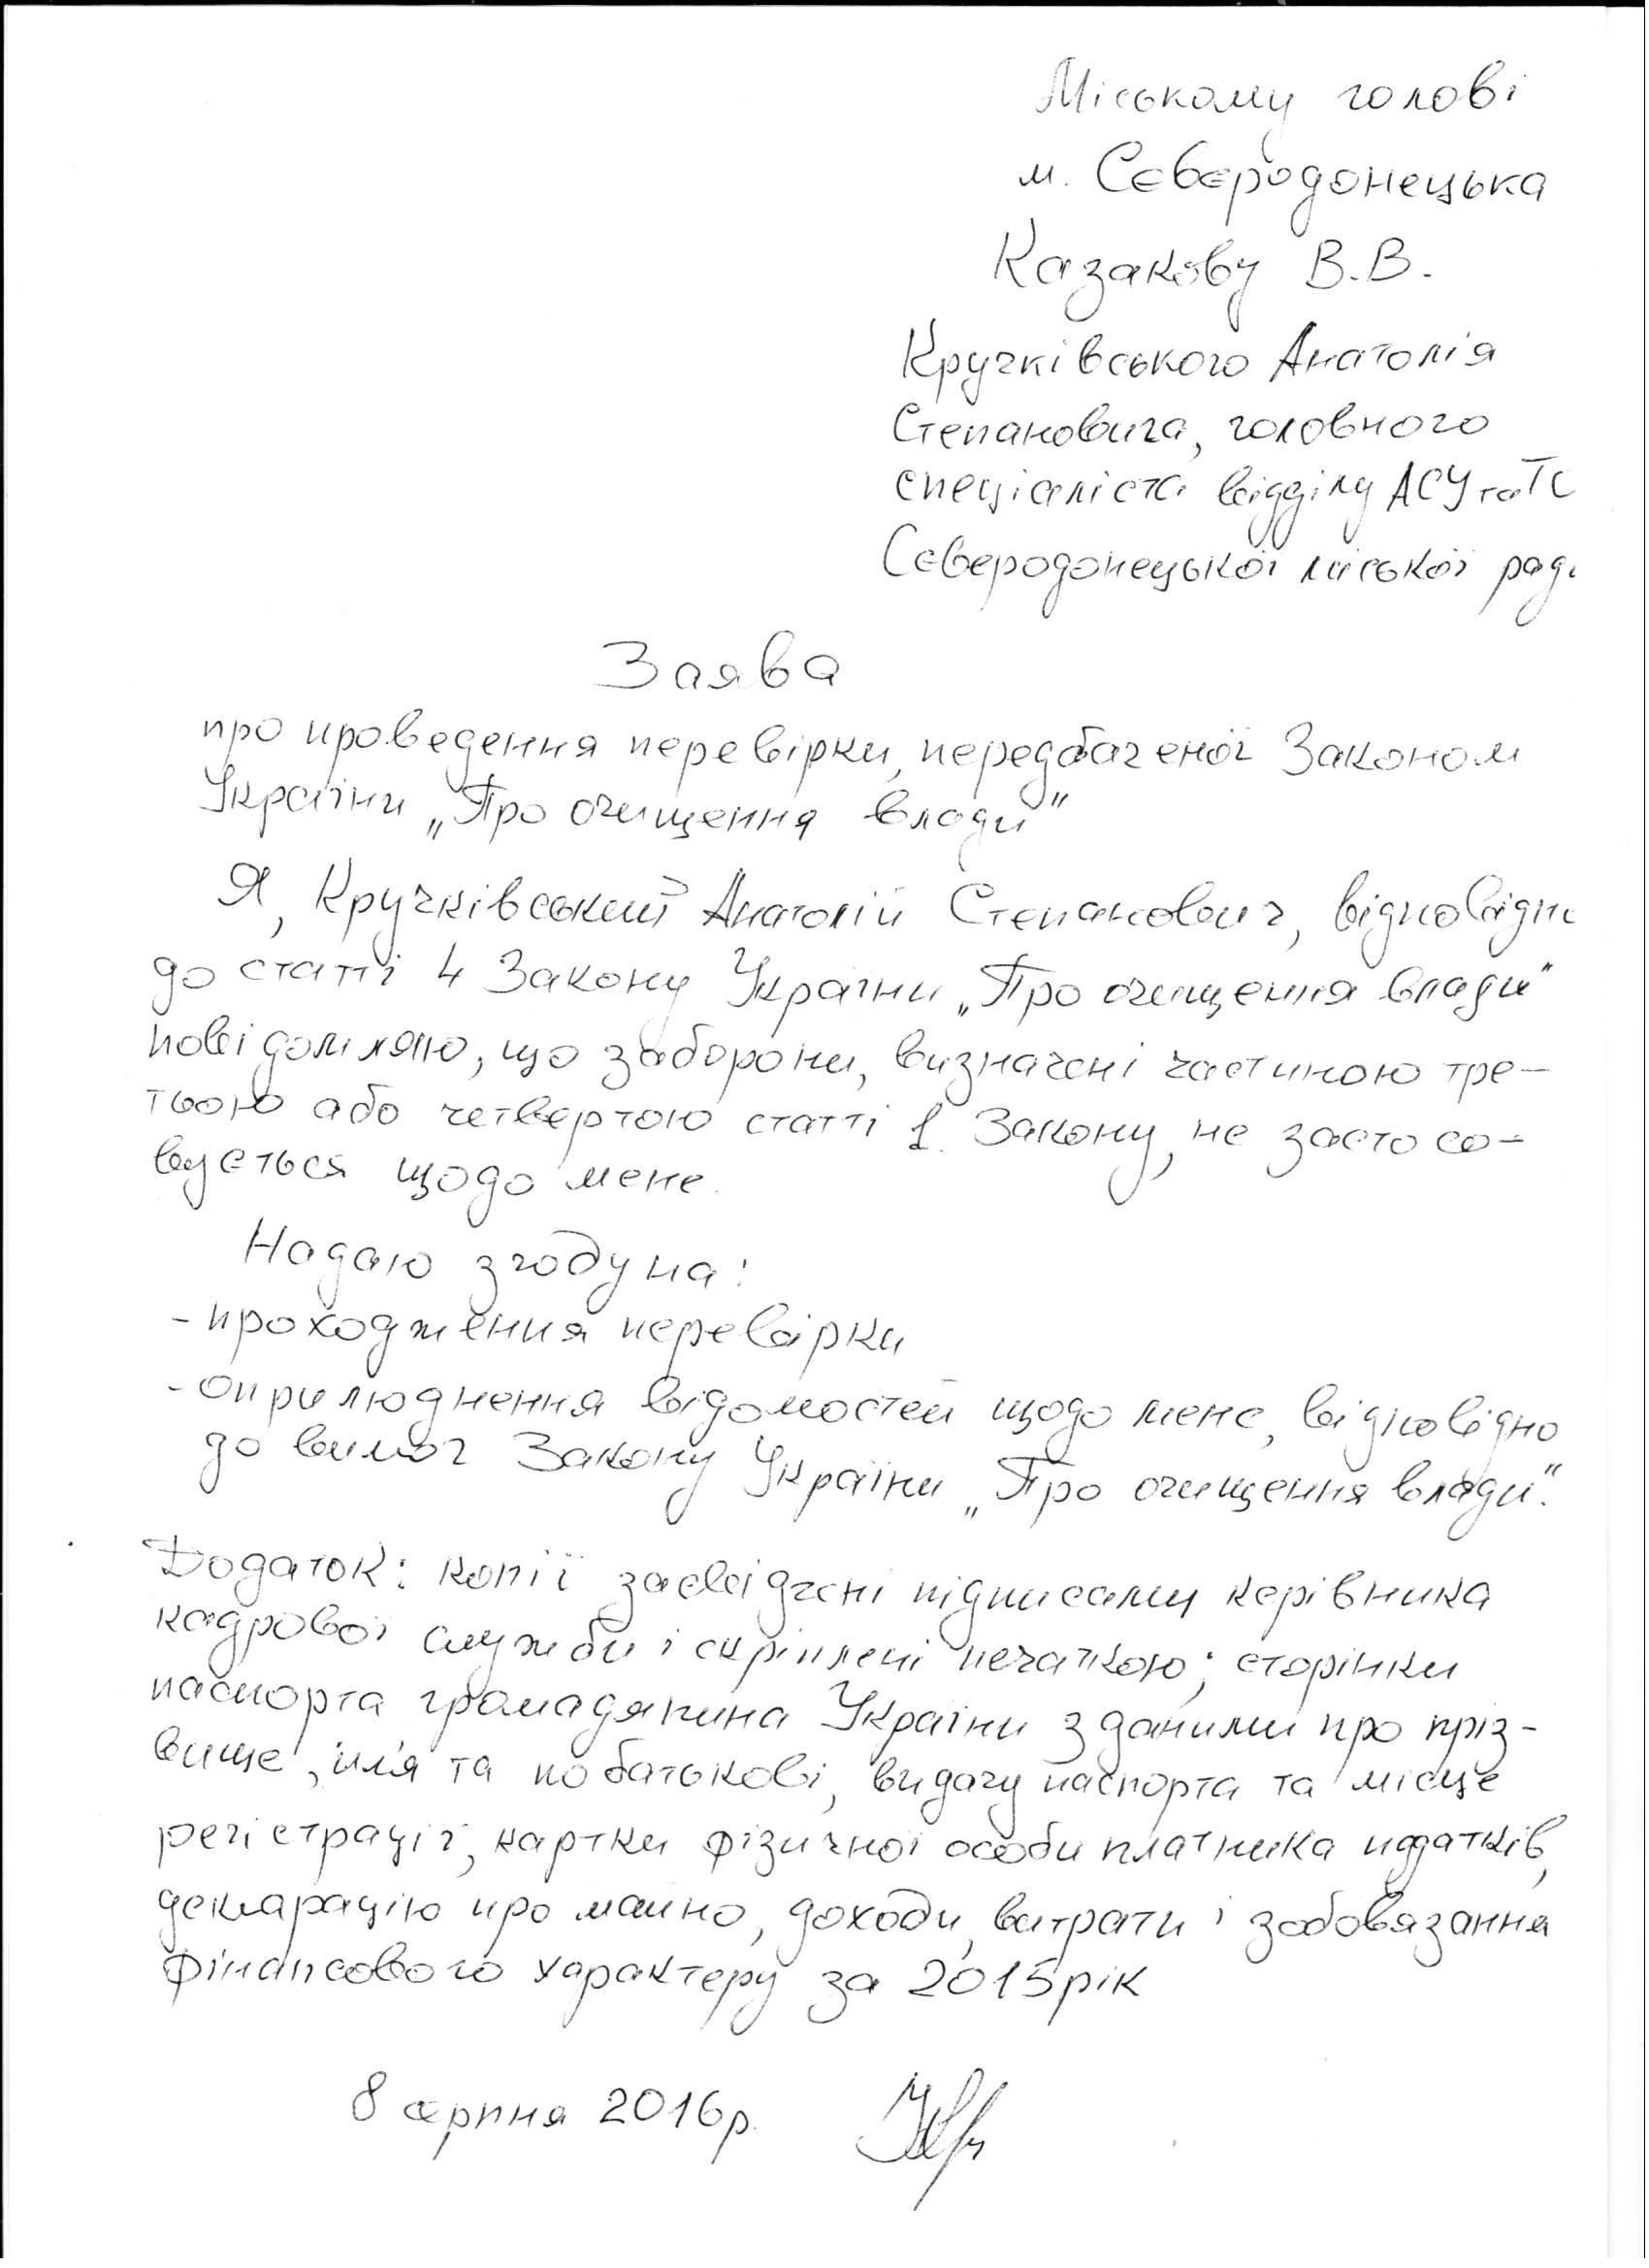 Міському голові
м. Сєвєродонецька
Казакову В.В.
Кручківського Анатолія
Степановича, головного
спеціаліста відділу АСУ та ТС
Сєверодонецької міської рад
Заява
про проведення перевірки, передбаченої Законом
України „Про очищення влади"
Я, Кручківський Анатолій Степанович, відповідн
до статті 4 Закону України „Про очищення влади"
повідомляю, що заборони, визначені частиною тре-
тьою або четвертою статті 1 Закону, не застосо-
вується щодо мене.
Надаю згоду на:
- проходження перевірки
- оприлюднення відомостей щодо мене, відповідно
до вимог Закону України „Про очищення влади".
Додаток: копії засвідчені підписами керівника
кадрової служби і скріплені печаткою; сторінки
паспорта громадянина України з даними про пріз-
вище, ім'я та по батькові, видачу паспорта та місце
регістрації, картки фізичної особи платника податків,
декларацію про майно, доходи, витрати і зобовязання
фінансового характеру за 2015рік
8 серпня 2016р.